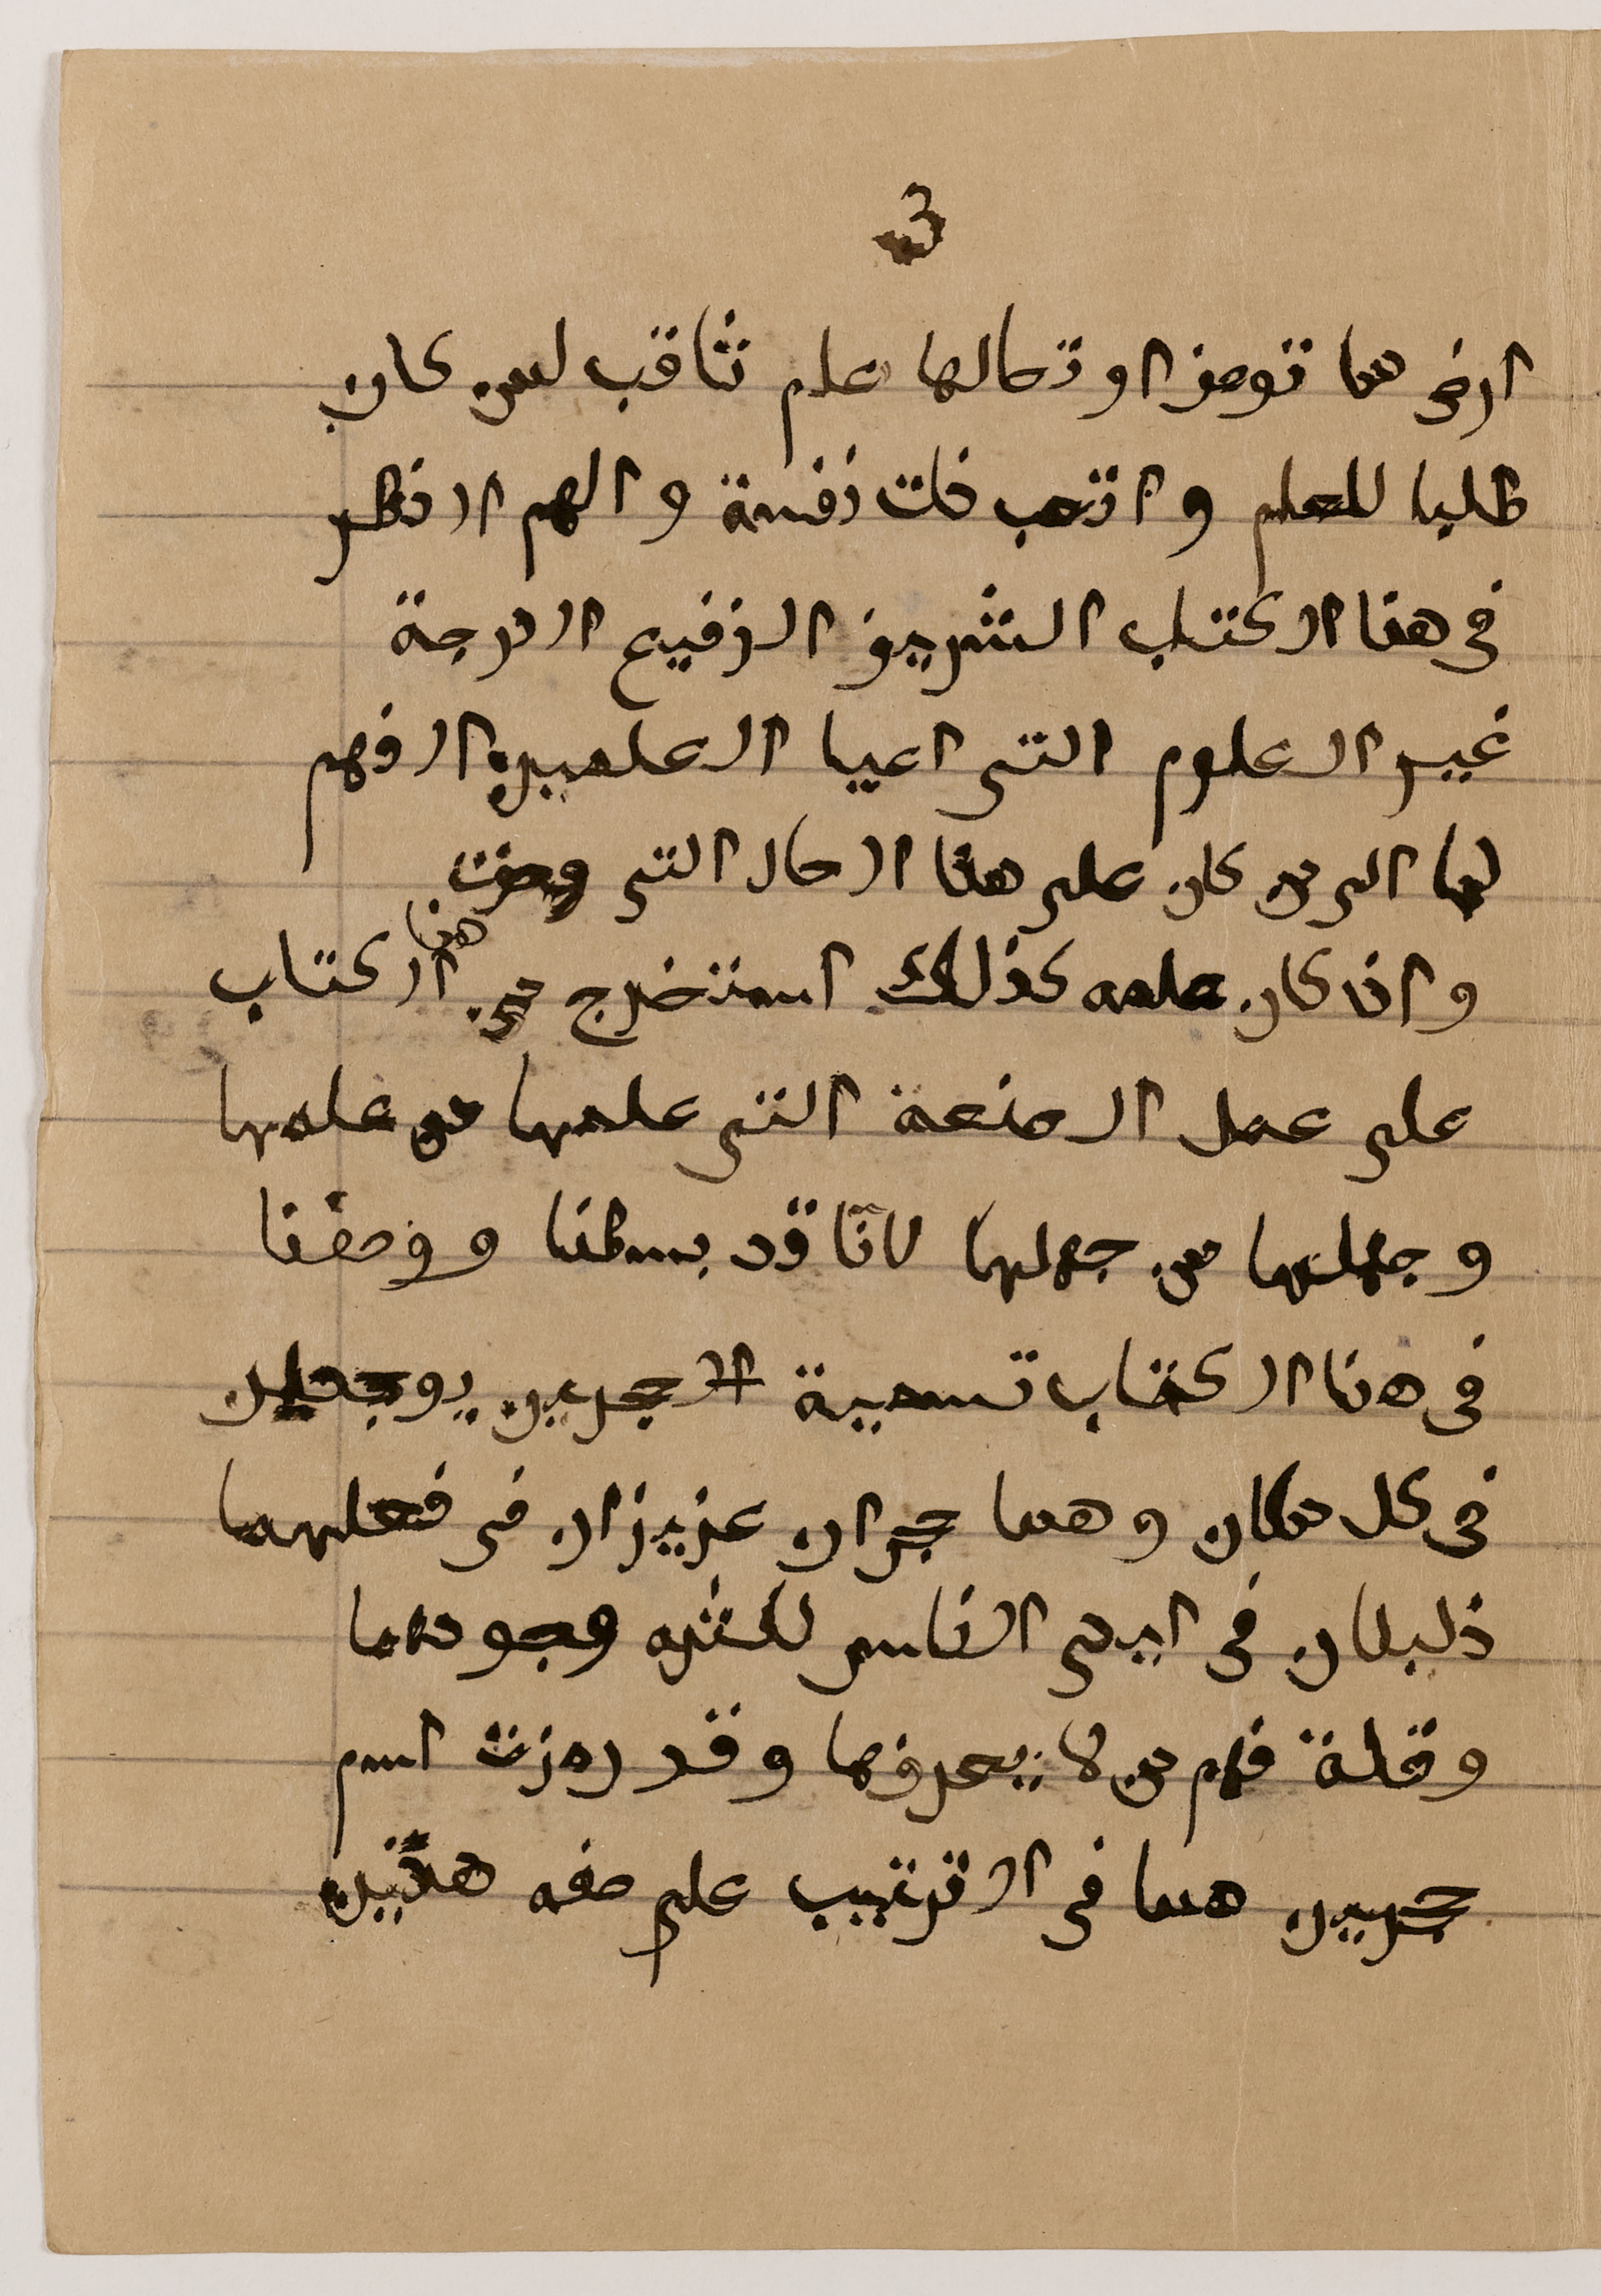 3
ارض ما توصف او تمالها علم ثاقب لمن كان
طلبا للعلم و اتعب ذلت نفسة و الهم النظر
فى هذا الكتاب الشريف الرفيع الدرجة
غير العلوم التى اعيا العلميين الفهم
لها الى من كان على هذا الحال التى وصفت
و اذا كان علمه كذلك استخرج من هذا الكتاب
على عمل الصنعة التى علمها من علمها
و جهلها من جهلها لانا قد بسطنا و وصفنا
فى هذا الكتاب تسمية الحجرين يوجدان
فى كل مكان و هما حجران عزيزان فى فعلهما
ذليلان فى ايدى الناس لكثره وجودهما
و قلة فهم من لا يعرفها و قد رمزت اسم
حجرين هما فى الترتيب على صفه هذين